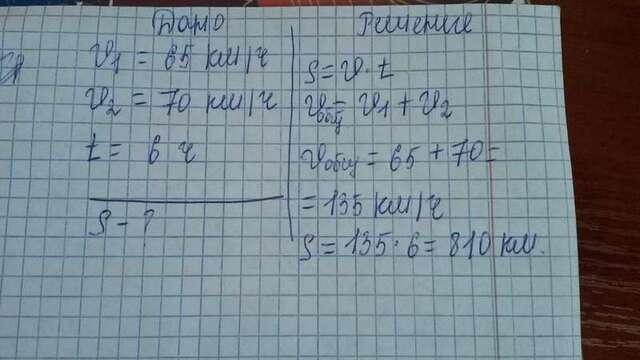 Дано
V₁ = 65 км/ч
V₂ = 70 км/ч
t = 6 ч
S - ?
Решение
S = V · t
Vобщ = V₁ + V₂
Vобщ = 65 + 70 =
= 135 км/ч
S = 135 · 6 = 810 км.